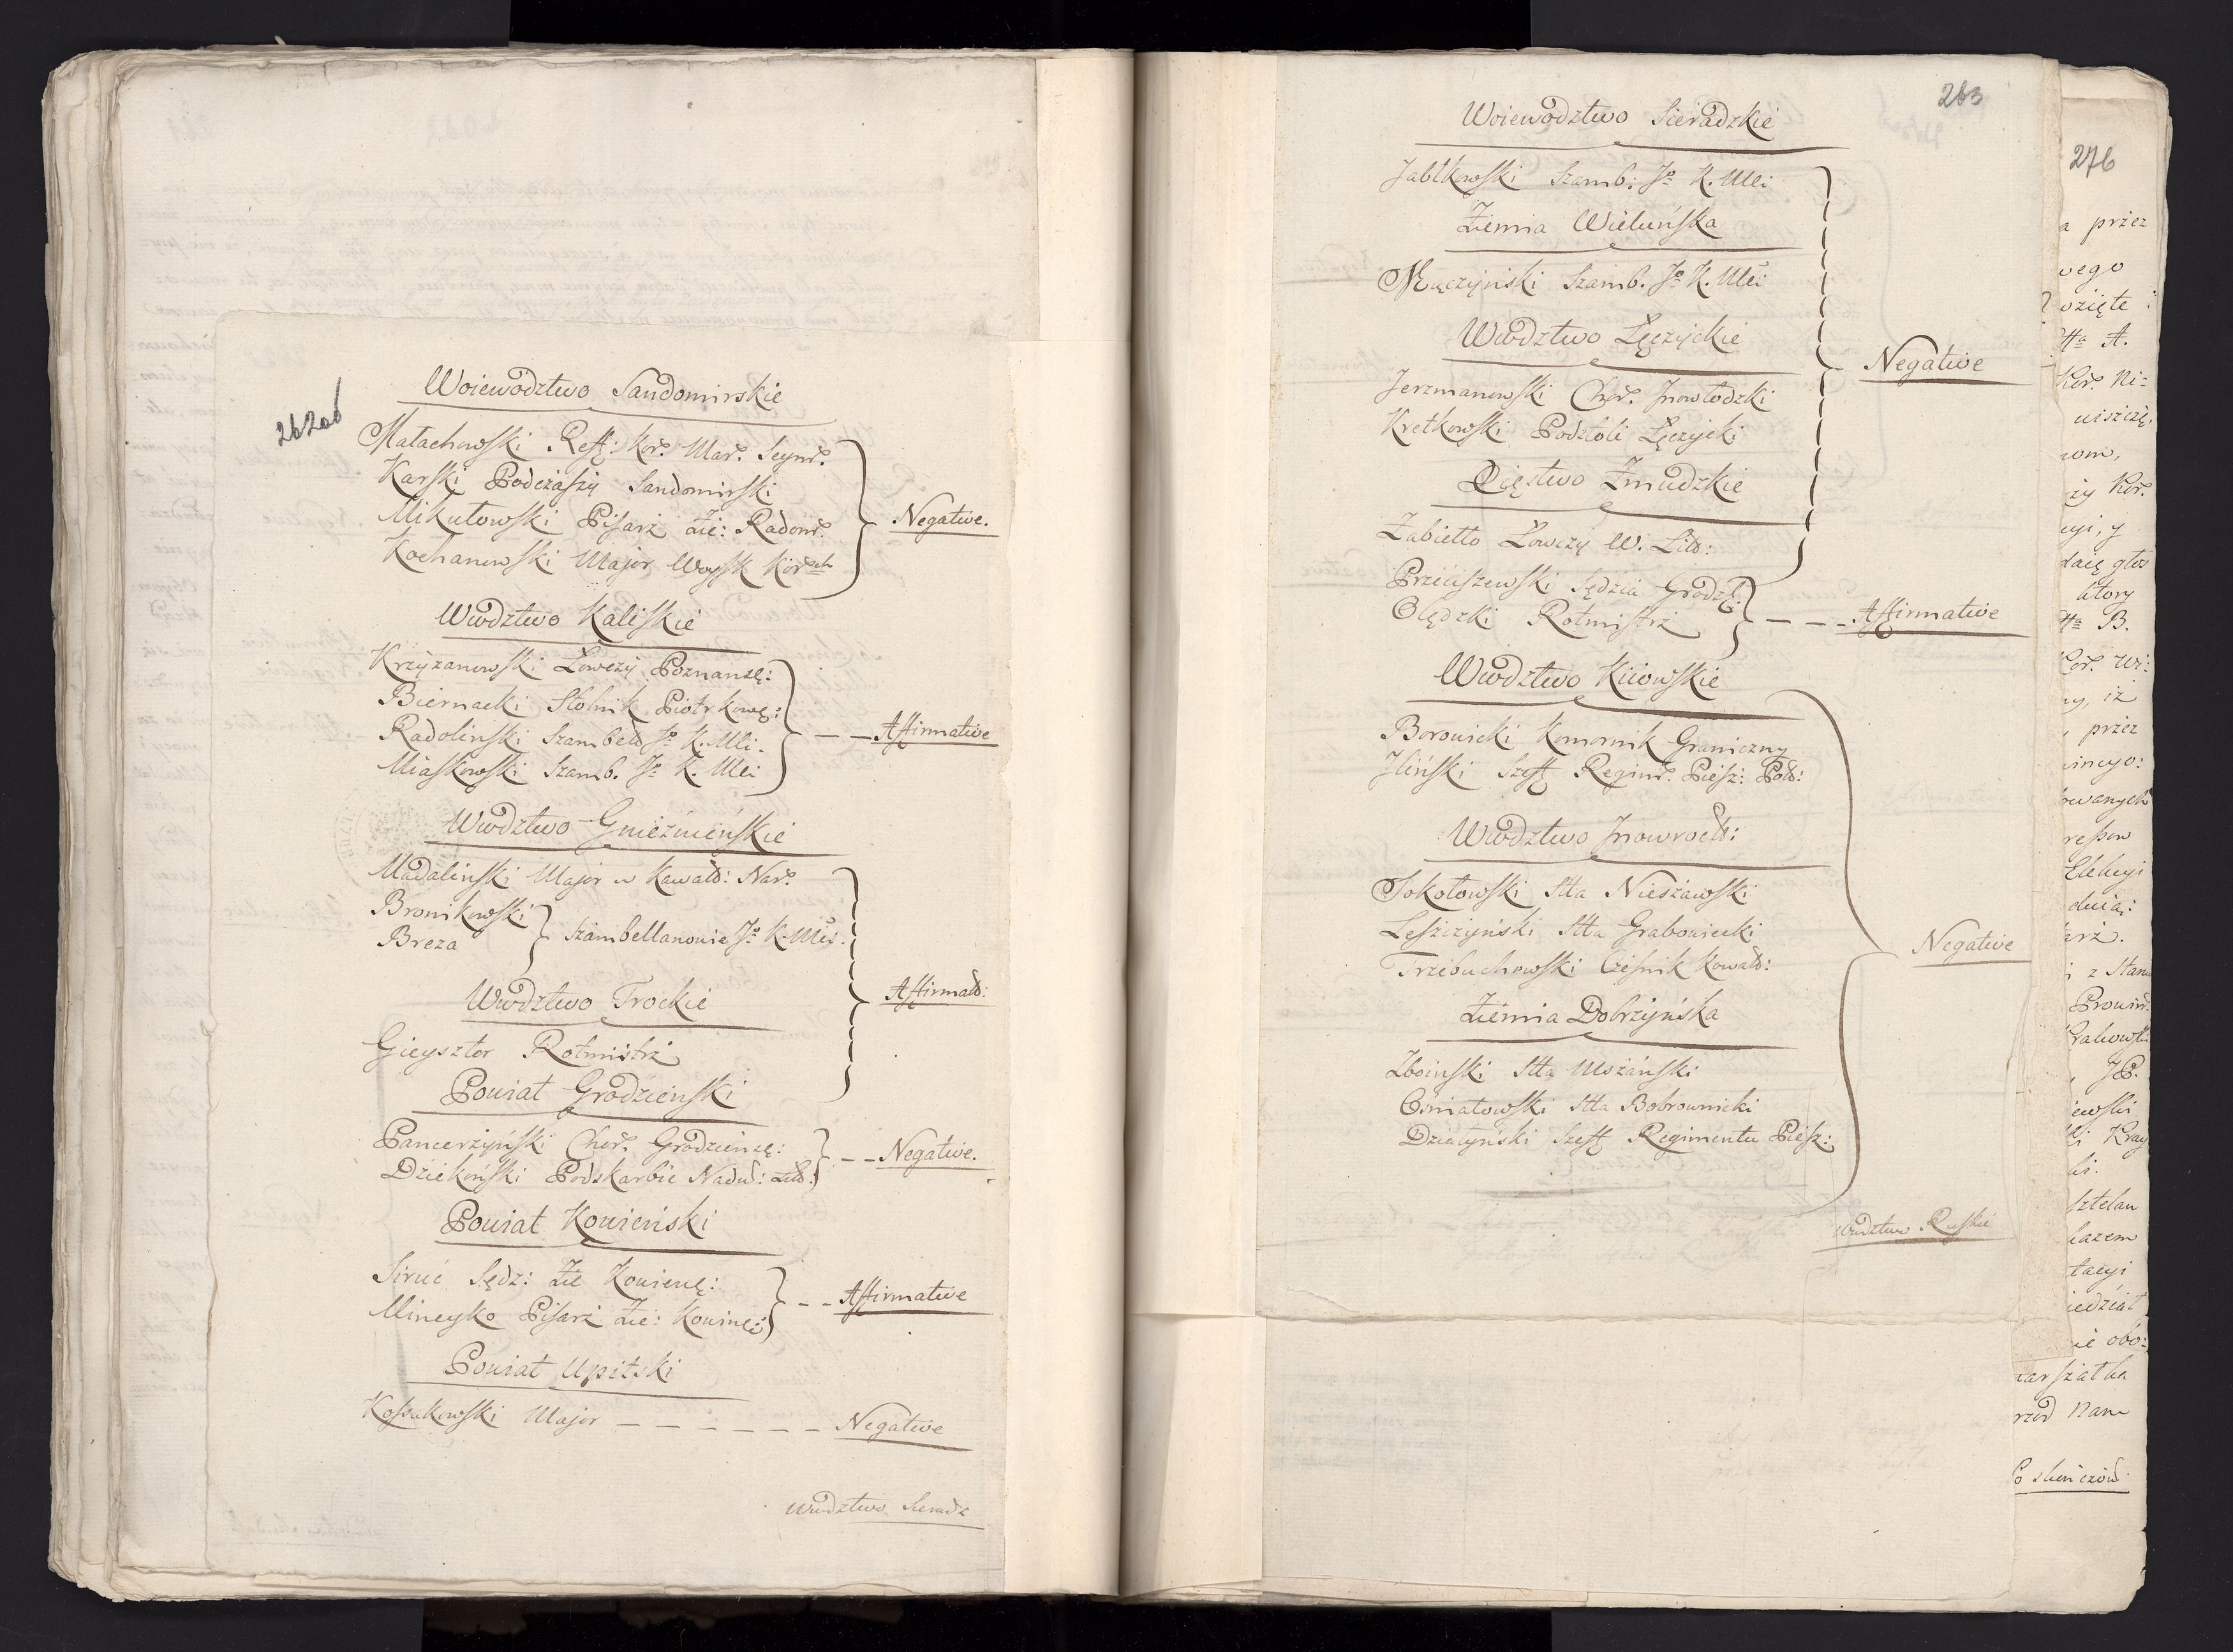 262od
Woiewodztwo Sandomirskie
Małachowski Reff: Kor. Mar. Seym.
Karski Podczaszy Sandomirski
Mikułowski Pisarz Zie: Radom.
Kochanowski Major Woysk Kor.ch
Negative.
Wwdztwo Kaliskie
Krzyżanowski Łowczy Poznansę:
Biernacki Stolnik Piotrkowę:
Radolinski Szambel Jo K. Mci.
Miaskowski Szamb. Jo K. Mci
Affirmative
Wwdztwo Gnieznieńskie
Madalinski Major w Kawal: Nar.
Bronikowski
Breza
Szambellanowie Jo K. Mci.
Wwdztwo Trockie
Gieysztor Rotmistrz
Affirmat:
Powiat Grodzienski
Pancerzyński Chor. Grodziensę:
Dziekoński Podskarbie Nadw: Lit:
Negative.
Powiat Kowieński
Siruć Sędz: Zie Kowienę:
Mineyko Pisarz Zie: Kowinę:
Affirmative
Powiat Upitski
Kossakowski Major
Negative
Wwdztwo Sieradz
263
Woiewodztwo Sieradzkie
Jabłkowski Szamb: Jo K. Mci
Ziemia Wieluńska
Mączyński Szamb. Jo K. Mci
Wwdztwo Łęczyckie
Negative
Jerzmanowski Chor. Inowłodzki
Kretkowski Podstoli Łęczycki
Xięstwo Żmudzkie
Zabiełło Łowczy W. Lit:
Przeciszewski Sędzia Grodz:
Olędzki Rotmistrz
Affirmative
Wwdztwo Kiiowskie
Borowicki Komornik Graniczny
Iliński Szeff Regim. Piesz: Pol:
Wwdztwo Inowrocł:
Sokołowski Stta Nieszawski
Leszczyński Stta Grabowiecki
Trzebuchowski Cześnik Kowal:
Negative
Ziemia Dobrzyńska
Zboinski Stta Mszański
Ośmiałowski Stta Bobrownicki
Działyński Szeff Regimentu Piesz:
Wwdztwo Ruskie
276
a przez
wego
wzięte
A.
Kor. Ni:
uiszczę.
nom,
zy Kor.
cyi, y
daię głos
który
B.
Kor. Wi:
ny, iż
, przez
wincyo:
owanych
Elekcyi
arz.
i z Stanu
Prowin.
rakowski
, JP.
iewski
Kray
ki.
sztelan
kazem
tacyi
iedział
ie obo:
marszałka
rzed Nam